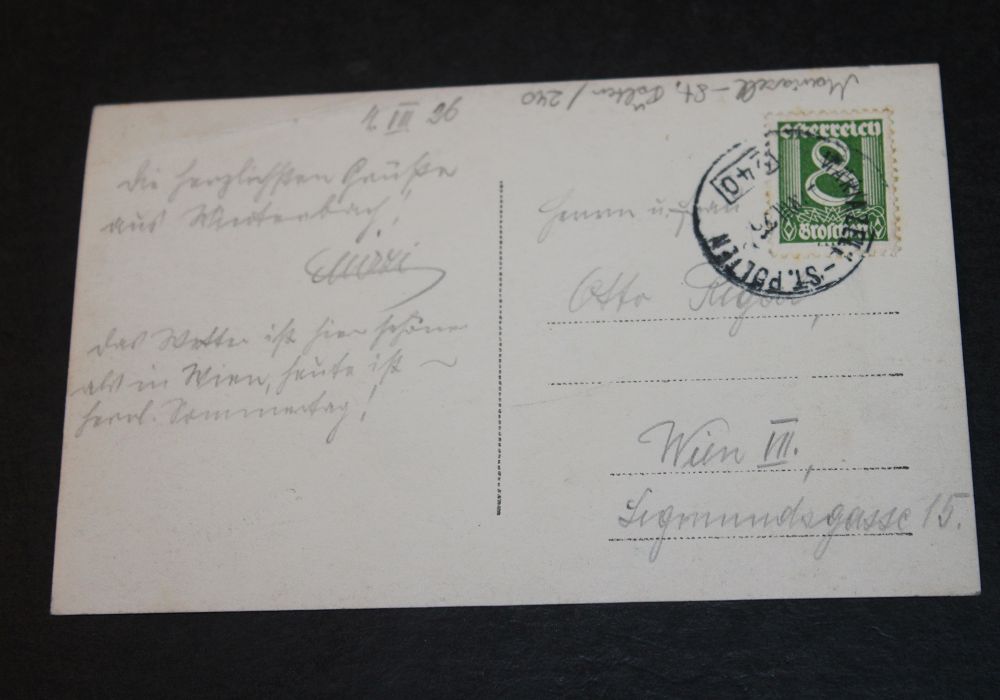 Mariazell – St. Pölten / 240
Die herzlichsten Grüße
aus Winterbach!
Mizzi
Das Wetter ist hier schöner
als in Wien, heute ist –
herrl. Sommertag!
Österreich
8
Groschen
MARIAZELL–ST. PÖLTEN
240
Herrn u. Frau
Otto
Wien VII.,
Sigmundsgasse 15.